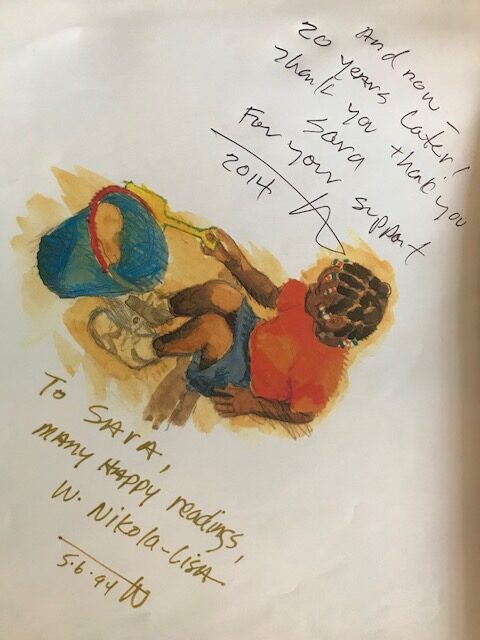 And now –
20 years later!
Thank you thank you
Sara
For your support
2014
To SARA,
MANY HAPPY readings,
W. Nikola-Lisa
5.6.94